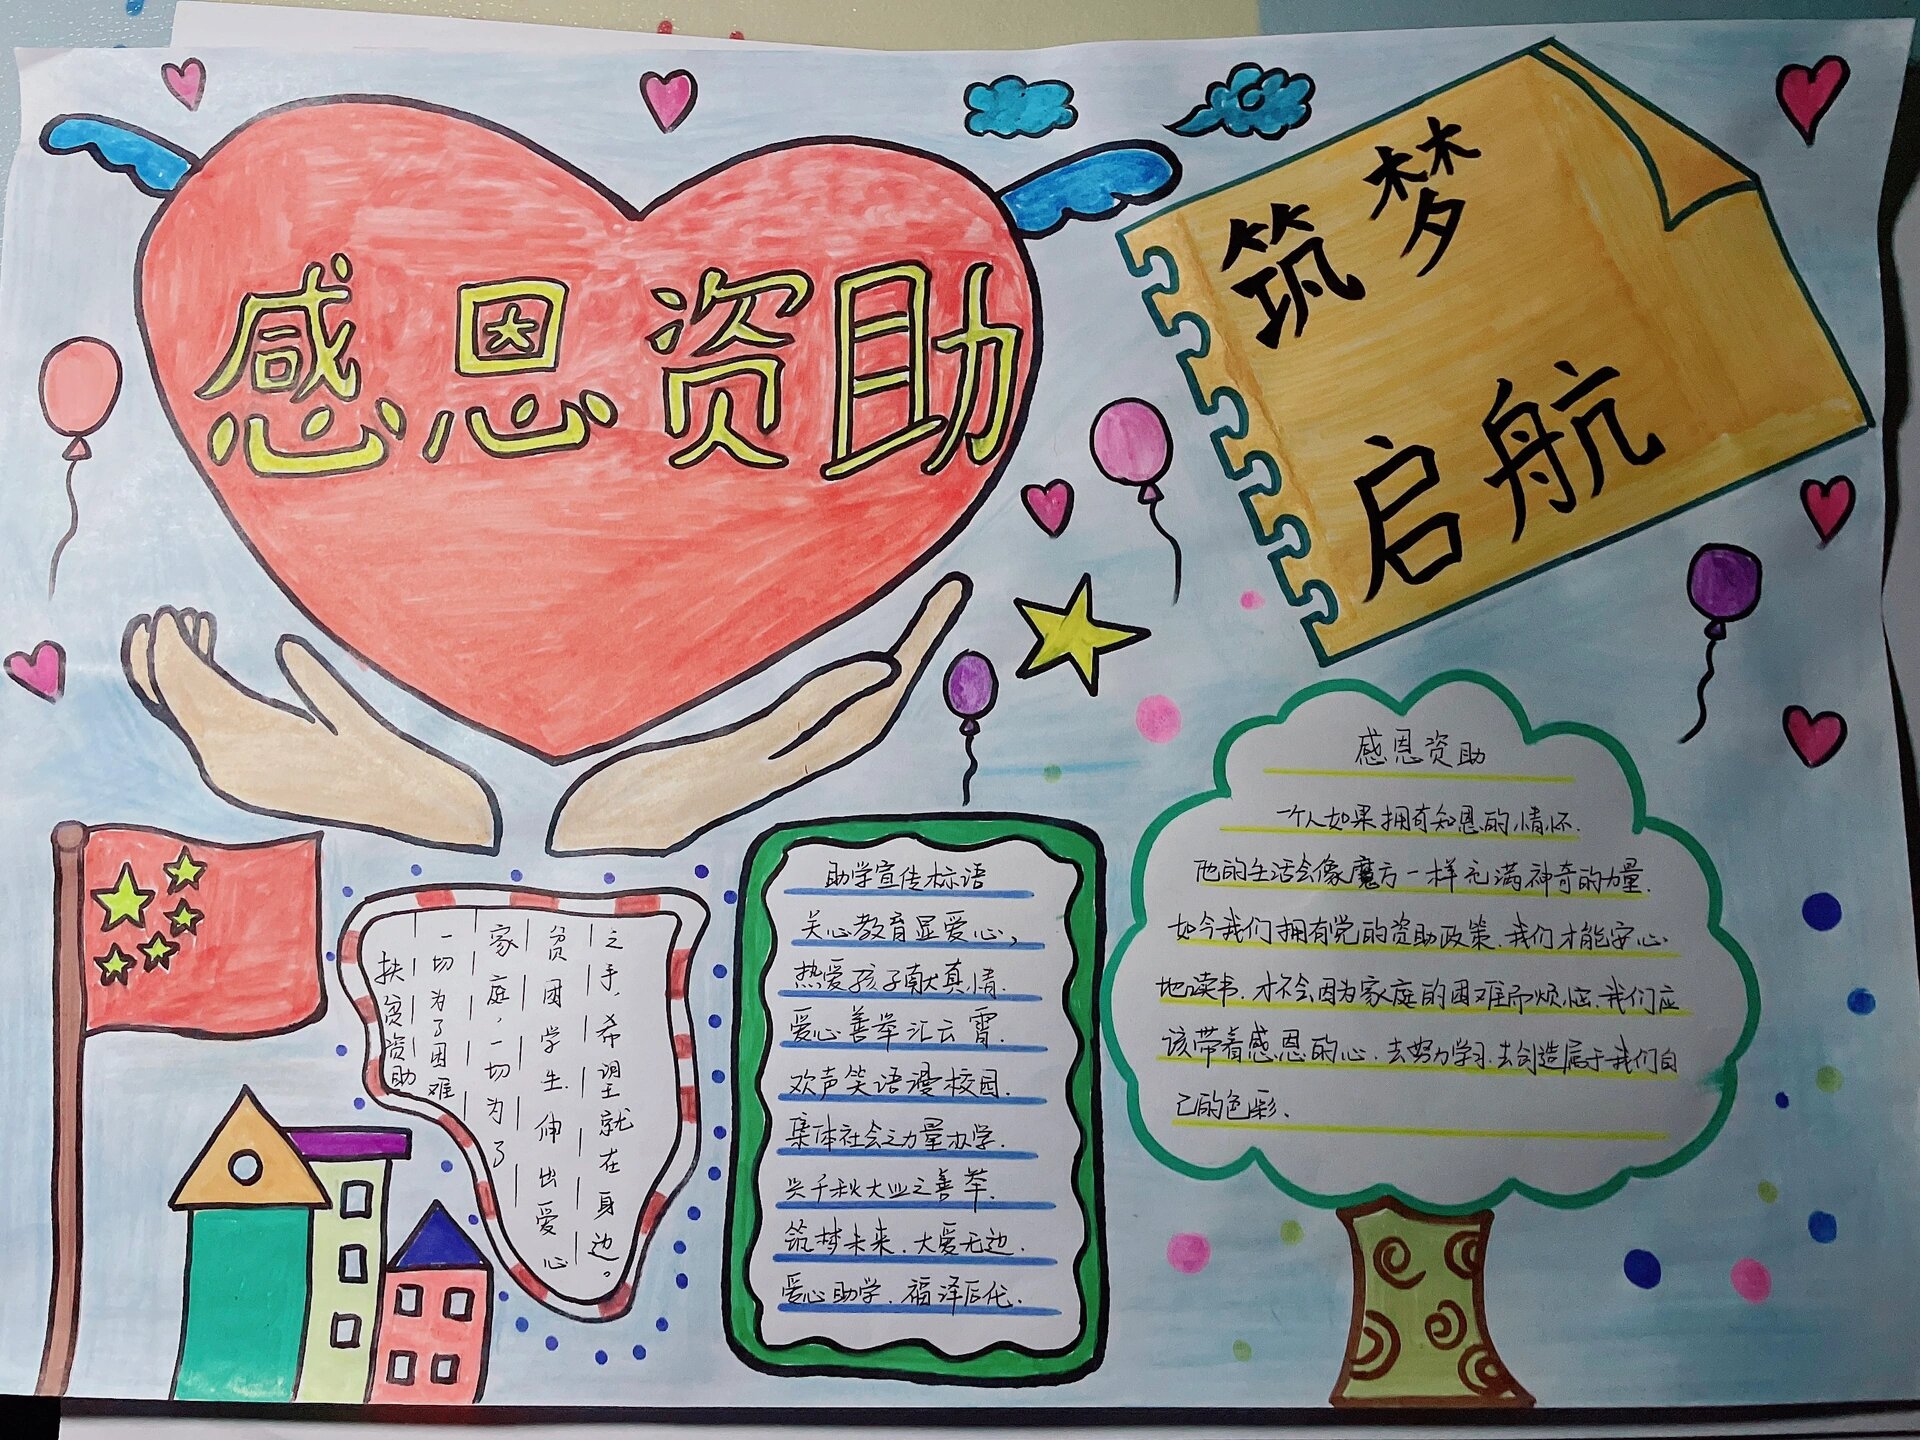 感恩资助
筑梦
启航
扶贫资助
一切为了困难
家庭,一切为了
贫困学生.伸出爱心
之手,希望就在身边。
助学宣传标语
关心教育显爱心,
热爱孩子献真情.
爱心善举汇云霄.
欢声笑语漫校园.
集体社会之力量办学.
兴千秋大业之善举.
筑梦未来.大爱无边.
爱心助学.福泽后代.
感恩资助
一个人如果拥有知恩的情怀.
他的生活会像魔方一样充满神奇的力量.
如今我们拥有党的资助政策.我们才能安心
地读书.才不会因为家庭的困难而烦恼.我们应
该带着感恩的心.去努力学习.去创造属于我们自
己的色彩.